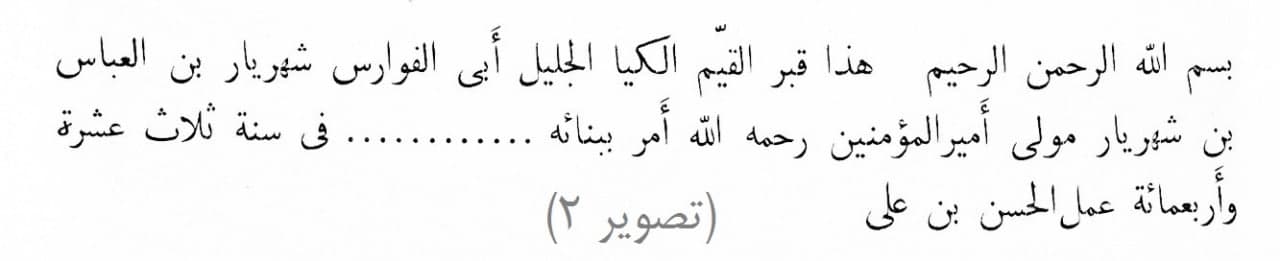 بسم الله الرحمن الرحيم هذا قبر القيّم الكيا الجليل أَبى الفوارس شهريار بن العباس
بن شهريار مولى أَميرالمؤمنين رحمه الله أَمر ببنائه ............. فى سنة ثلاث عشرة
وأَربعمائة عمل الحسن بن على
(تصویر ۲)